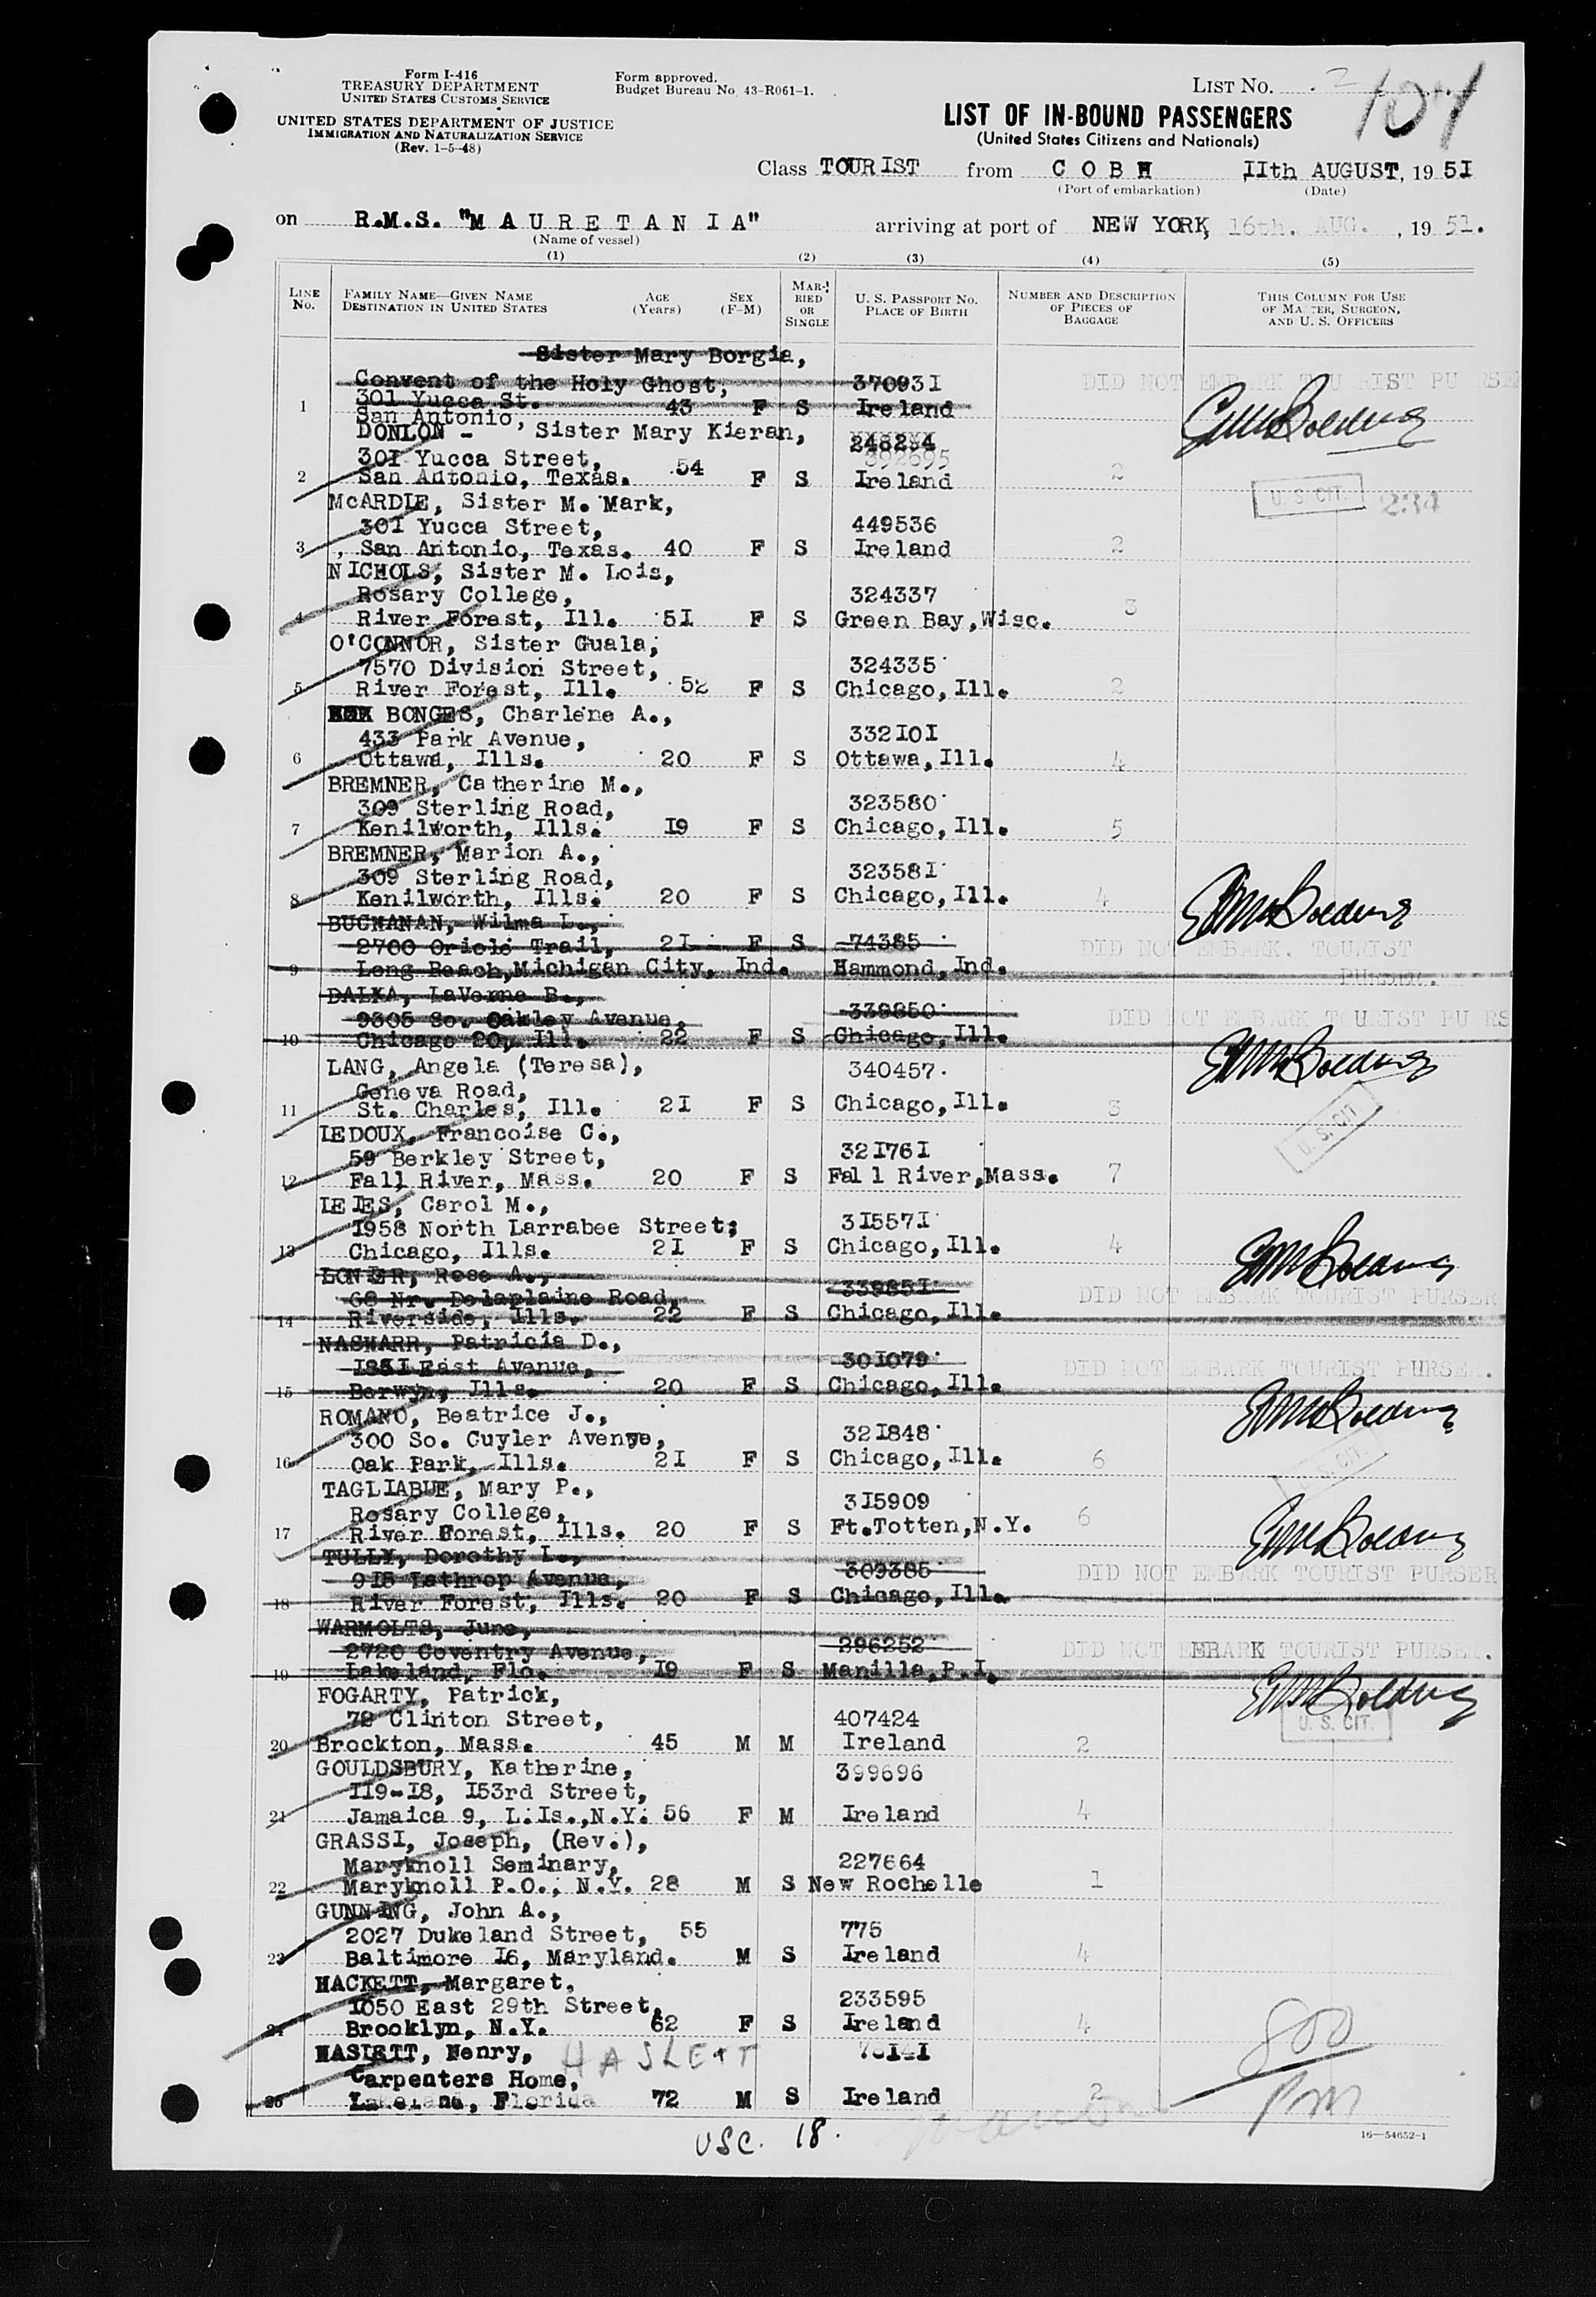 Form I-416
TREASURY DEPARTMENT
UNITED STATES CUSTOMS SERVICE
UNITED STATES DEPARTMENT OF JUSTICE
IMMIGRATION AND NATURALIZATION SERVICE
(Rev. 1-5-48)
Form approved.
Budget Bureau No. 43-R061-1.
LIST No. 2
101
LIST OF IN-BOUND PASSENGERS
(United States Citizens and Nationals)
Class TOURIST from COBH IIth AUGUST, 19 5I
(Port of embarkation) (Date)
on R.M.S. "MAURETANIA" arriving at port of NEW YORK, 16th. AUG. , 19 51.
(Name of vessel)
(1) (2) (3) (4) (5)
LINE No. FAMILY NAME—GIVEN NAME DESTINATION IN UNITED STATES AGE (Years) SEX (F-M) MARRIED OR SINGLE U. S. PASSPORT No. PLACE OF BIRTH NUMBER AND DESCRIPTION OF PIECES OF BAGGAGE THIS COLUMN FOR USE OF MASTER, SURGEON, AND U. S. OFFICERS
Sister Mary Borgia,
Convent of the Holy Ghost, 37093I DID NOT EMBARK TOURIST PURSER
301 Yucca St.
1 San Antonio, 43 F S Ireland
DONLON - Sister Mary Kieran, 248234
301 Yucca Street, 392695
2 San Antonio, Texas. 54 F S Ireland 2
U. S. CIT. 234
McARDLE, Sister M. Mark,
30I Yucca Street, 449536
3 San Antonio, Texas. 40 F S Ireland 2
NICHOLS, Sister M. Lois,
Rosary College, 324337
4 River Forest, Ill. 5I F S Green Bay, Wisc. 3
O'CONNOR, Sister Guala,
7570 Division Street, 324335
5 River Forest, Ill. 52 F S Chicago, Ill. 2
BONGES, Charlene A.,
433 Park Avenue, 332I0I
6 Ottawa, Ills. 20 F S Ottawa, Ill. 4
BREMNER, Catherine M.,
309 Sterling Road, 323580
7 Kenilworth, Ills. I9 F S Chicago, Ill. 5
BREMNER, Marion A.,
309 Sterling Road, 32358I
8 Kenilworth, Ills. 20 F S Chicago, Ill. 4
BUCHANAN, Wilma L.,
2700 Oriole Trail, 2I F S 74385 DID NOT EMBARK. TOURIST
9 Long Beach, Michigan City, Ind. Hammond, Ind. PURSER.
DALKA, LaVerne B.,
9305 So. Oakley Avenue, 339850 DID NOT EMBARK TOURIST PURS
10 Chicago 20, Ill. 22 F S Chicago, Ill.
LANG, Angela (Teresa), 340457.
Geneva Road,
11 St. Charles, Ill. 2I F S Chicago, Ill. 3
U. S. CIT.
LEDOUX, Francoise C.,
59 Berkley Street, 32I76I
12 Fall River, Mass. 20 F S Fall River, Mass. 7
LEIES, Carol M.,
I958 North Larrabee Street; 3I557I
13 Chicago, Ills. 2I F S Chicago, Ill. 4
Rose A.,
68 Nr. Delaplaine Road, 33985I DID NOT EMBARK TOURIST PURSER
14 Riverside, Ills. 22 F S Chicago, Ill.
Patricia D.,
East Avenue, 30I079 DID NOT EMBARK TOURIST PURSER.
15 Berwyn, Ills. 20 F S Chicago, Ill.
ROMANO, Beatrice J.,
300 So. Cuyler Avenye, 32I848
16 Oak Park, Ills. 2I F S Chicago, Ill. 6
U. S. CIT
TAGLIABUE, Mary P.,
Rosary College, 3I5909
17 River Forest, Ills. 20 F S Ft.Totten, N.Y. 6
TULLY, Dorothy L.,
9I8 Lathrop Avenue, 309385 DID NOT EMBARK TOURIST PURSER
18 River Forest, Ills. 20 F S Chicago, Ill.
WARMOLTS, June,
2720 Coventry Avenue, 296252 DID NOT EMBARK TOURIST PURSER.
19 Lakeland, Flo. I9 F S Manilla, P.I.
FOGARTY, Patrick,
72 Clinton Street, 407424 U. S. CIT.
20 Brockton, Mass. 45 M M Ireland 2
GOULDSBURY, Katherine, 399696
II9-I8, I53rd Street,
21 Jamaica 9, L.Is., N.Y. 56 F M Ireland 4
GRASSI, Joseph, (Rev.),
Maryknoll Seminary, 227664
22 Maryknoll P.O., N.Y. 28 M S New Rochelle 1
GUNNING, John A.,
2027 Dukeland Street, 55 775
23 Baltimore I6, Maryland. M S Ireland 4
HACKETT, Margaret,
I050 East 29th Street, 233595
24 Brooklyn, N.Y. 62 F S Ireland 4
HASLETT, Henry, HASLETT
Carpenters Home,
25 Lakeland, Florida 72 M S Ireland 2
800
PM
USC. 18.
16—54652-1